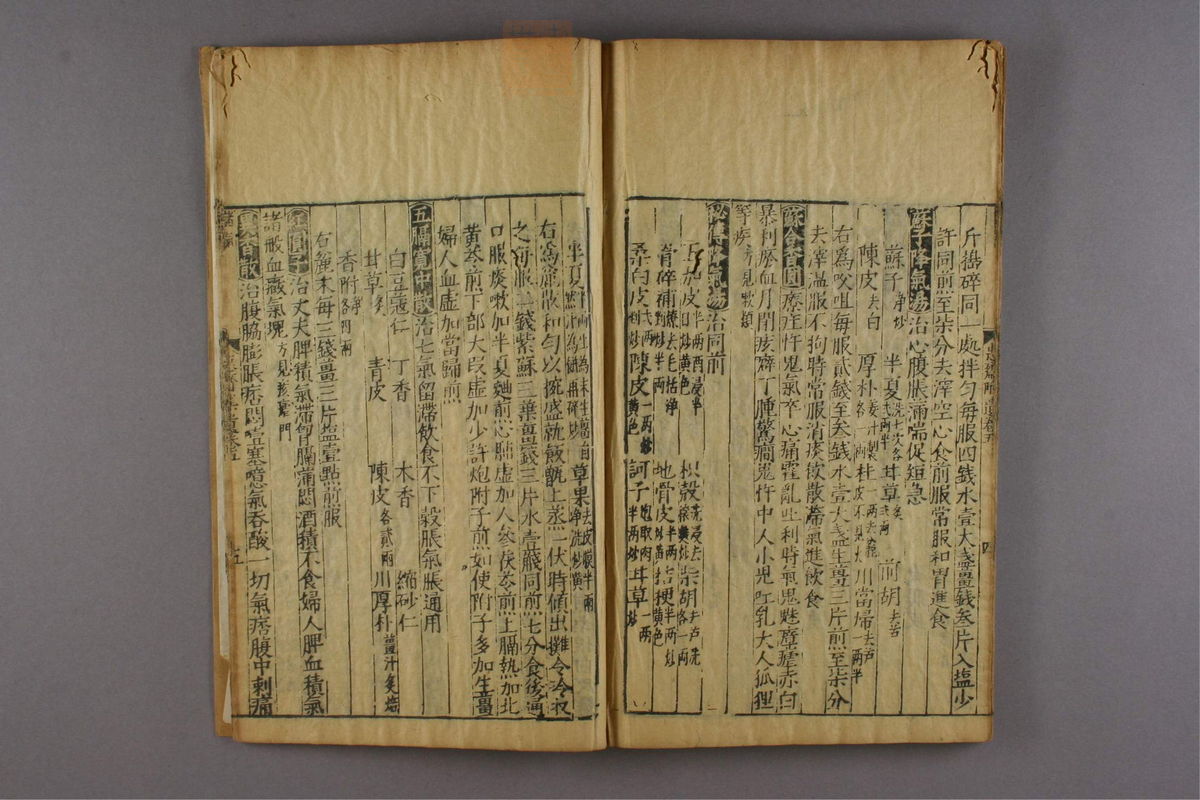 斤搗碎同一處拌匀每服四錢水壹大盞薑錢叁片入塩少
許同煎至柒分去滓空心食前服常服和胃進食
蘇子降氣湯治心腹脹滿喘促短急
蘇子净炒 半夏湯洗七次各弍兩半 甘草炙弍兩 前胡去苦
陳皮去白 厚朴姜汁製各一兩 桂皮不見火 川當歸去芦一兩半
右為㕮咀每服貳錢至叁錢水壹大盞生薑三片煎至柒分
去滓温服不拘時常服消痰飲散滯氣進飲食
蘇合香圓療疰忤鬼氣卒心痛霍亂吐利時氣鬼魅瘴瘧赤白
暴利瘀血月閉痃癖丁腫驚癎鬼忤中人小児吐乳大人狐狸
等疾方見嗽類
秘傳降氣湯治同前
五加皮半兩酒浸半日炒黄色 枳殼洗浸去穰麩炒 柴胡去芦洗各一兩
骨碎補燎去毛恬净剉炒半兩 地骨皮炒黄 桔梗半兩炒黄色
桑白皮弍兩剉炒 陳皮一兩炒黄色 訶子炮取肉半兩炒 甘草一兩炒
草果去皮
右為麄散和匀以椀盛就飯甑上蒸一伏時傾出攤令冷收
之每服二錢紫蘇三葉薑錢三片水壹盞同煎七分食後通
口服痰嗽加半夏麯煎心肺虚加人參茯苓煎上膈熱加北
黄芩煎下部大段虚加少許炮附子煎如使附子多加生薑
婦人血虚加當歸煎
五膈寛中散治七氣留滯飲食不下穀脹氣脹通用
白豆蔲仁 丁香 木香 縮砂仁
甘草炙 青皮 陳皮各貳兩 川厚朴薑汁炙焙
香附净各四兩
右麄末每三錢薑三片塩壹點煎服
紅圓子治丈夫脾積氣滯胷膈滿悶酒積不食婦人脾血積氣
諸般血癥氣塊方見痎瘧門
治腹脇膨脹痞悶噎塞噫氣吞酸一切氣痞腹中刺痛